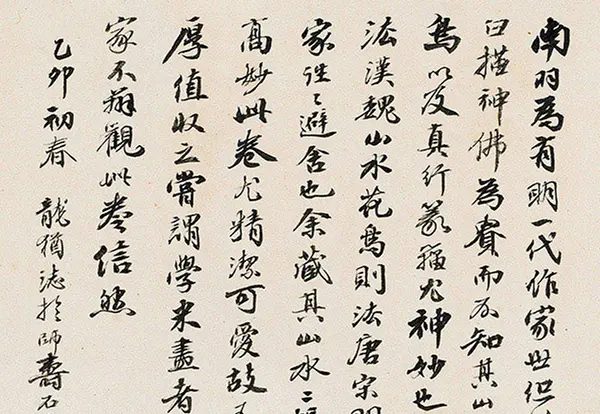 南羽為有明一代作家世但
白描神佛為貴而不知其山
鳥以及真行篆籀尤神妙也
法漢魏山水花鳥則法唐宋
家往往避舍也余藏其山水二
高妙此卷尤精潔可愛故
厚值收之嘗謂學朱畫者
家不稱觀此卷信然
乙卯初春 龍猶誌於師壽石